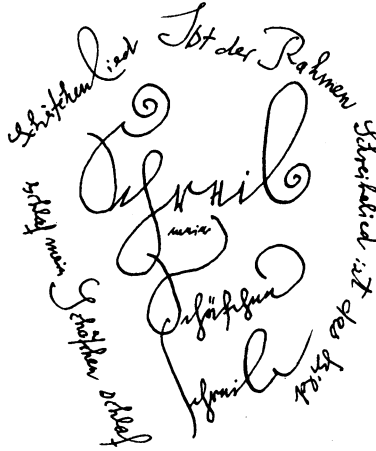 Schäfchenlied
Ist der Rahmen
Schreibalied ist das Bild
schlaf mein Schäfchen schlaf
Schreib
mein
Schäfchen
schreib